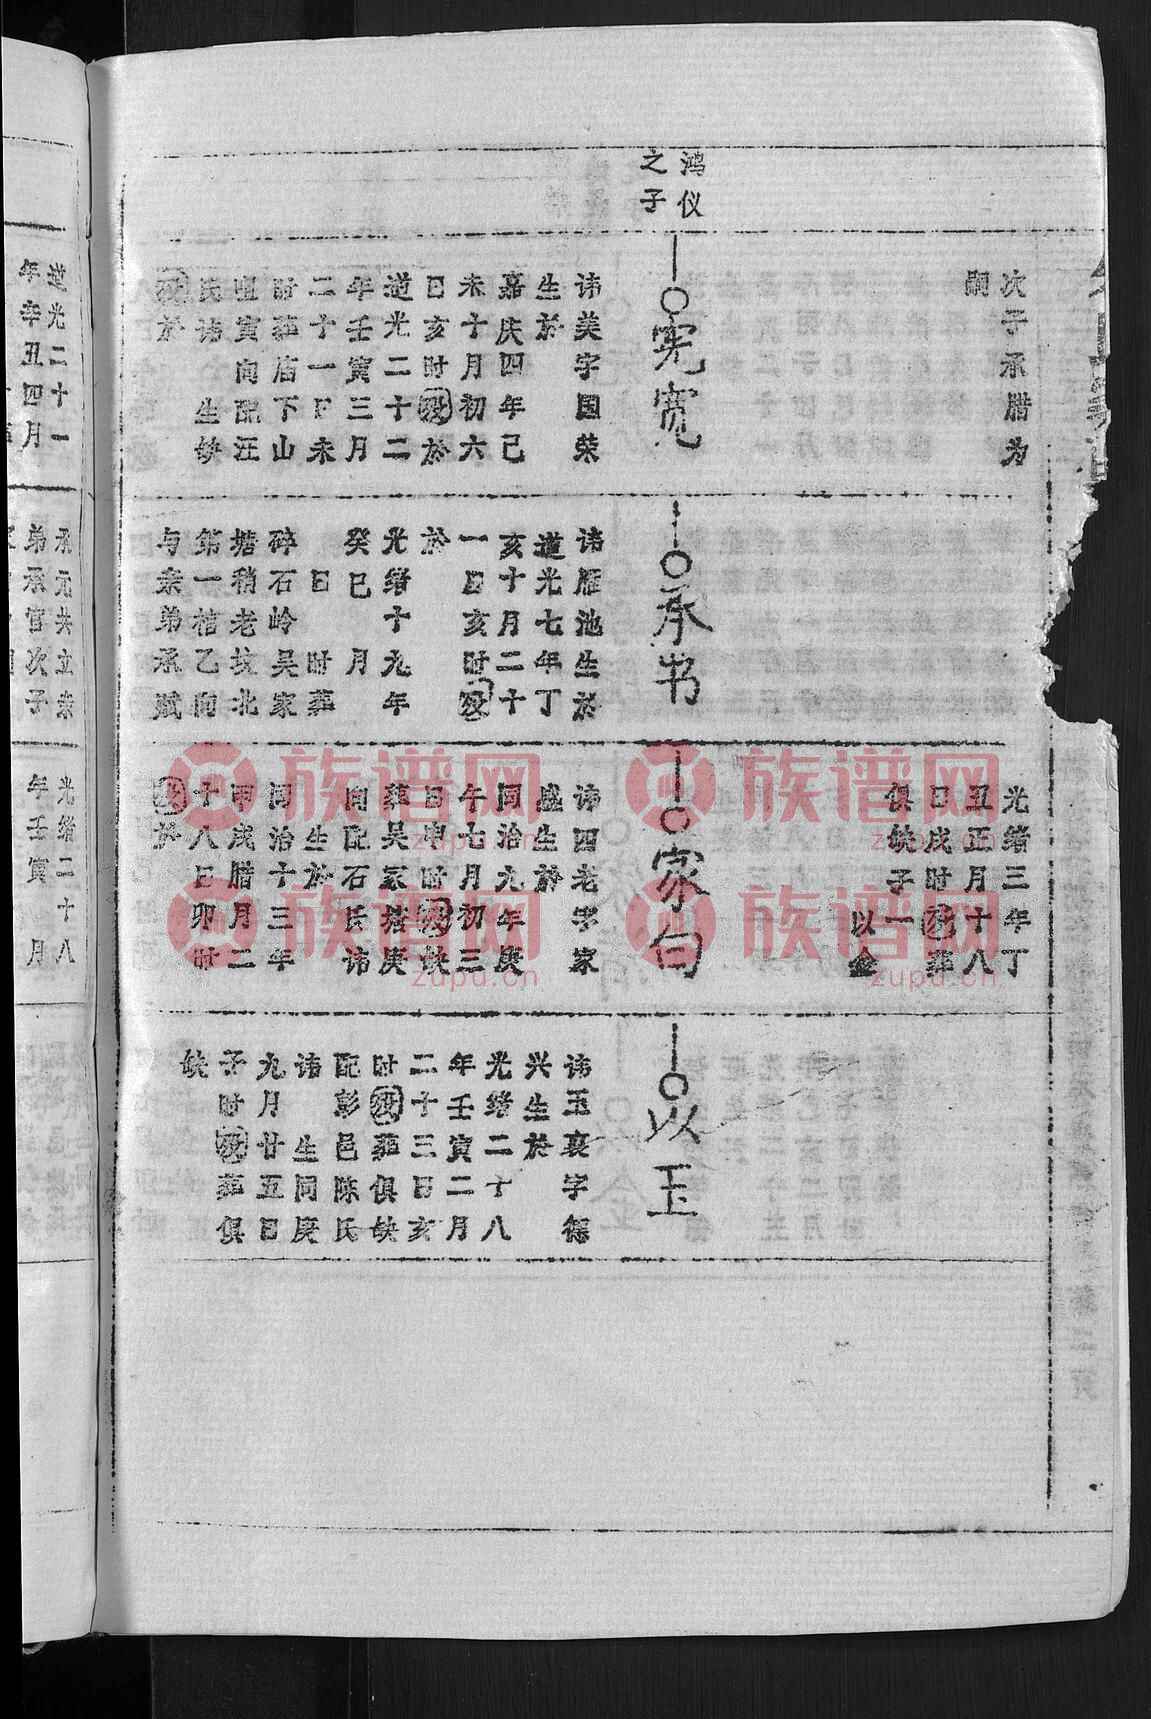 鸿仪
之子
次子承腊为
嗣
宪宽
讳美字国荣
生於
嘉庆四年己
未十月初六
日亥时殁於
道光二十二
年壬寅三月
二十一日未
时葬庙下山
寅向配汪
氏讳 生缺
殁於
承书
讳雁池生於
道光七年丁
亥十月二十
一日亥时殁
於
光绪十九年
癸巳 月
日 时葬
碎石岭吴家
塘稍老坟北
第一棺乙向
与亲弟承赋
光绪三年丁
丑正月十八
日戌时殁葬
俱缺子一
以金
家句
讳四老字家
盛生於
同治九年庚
午七月初三
日申时殁缺
葬吴家塔庚
向配石氏讳
生於
同治十三年
甲戌腊月二
十八日卯时
殁於
以玉
讳玉衰字德
兴生於
光绪二十八
年壬寅二月
二十三日亥
时殁葬俱缺
配彭邑陈氏
讳 生同庚
九月廿五日
子时殁葬俱
缺
道光二十一
年辛丑四月
承元共立亲
弟承官次子
光绪二十八
年壬寅 月
族谱网
zupu.cn
族谱网
zupu.cn
族谱网
zupu.cn
族谱网
zupu.cn